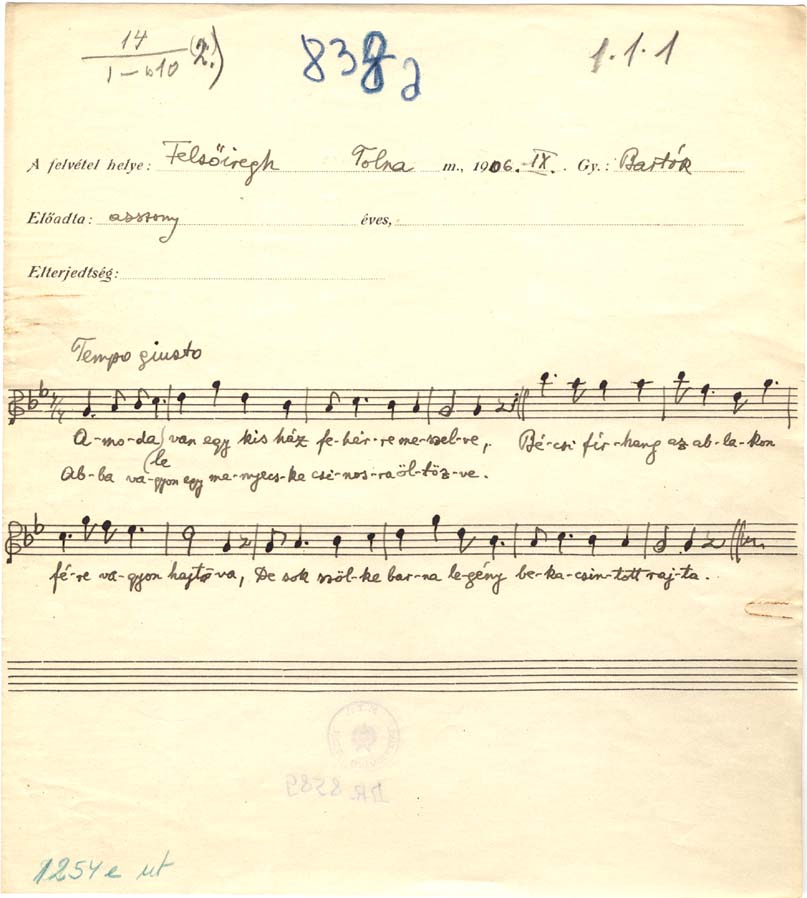 14
1-610 (2.)
838
1.1.1
A felvétel helye: Felsőiregh Tolna m., 1906. IX. Gy.: Bartók
Előadta: asszony éves,
Elterjedtség:
Tempo giusto
A-mo-da van egy kis ház fe-hér-re me-szel-ve, Bé-csi fir-hang az ab-la-kon
(le
Ab-ba va-gyon egy me-nyecs-ke csi-nos-ra öl-töz-ve.
fé-re va-gyon hajt-va, De sok szöl-ke bar-na le-gény be-ka-csin-tott raj-ta.
DR 8589
1254 e ut